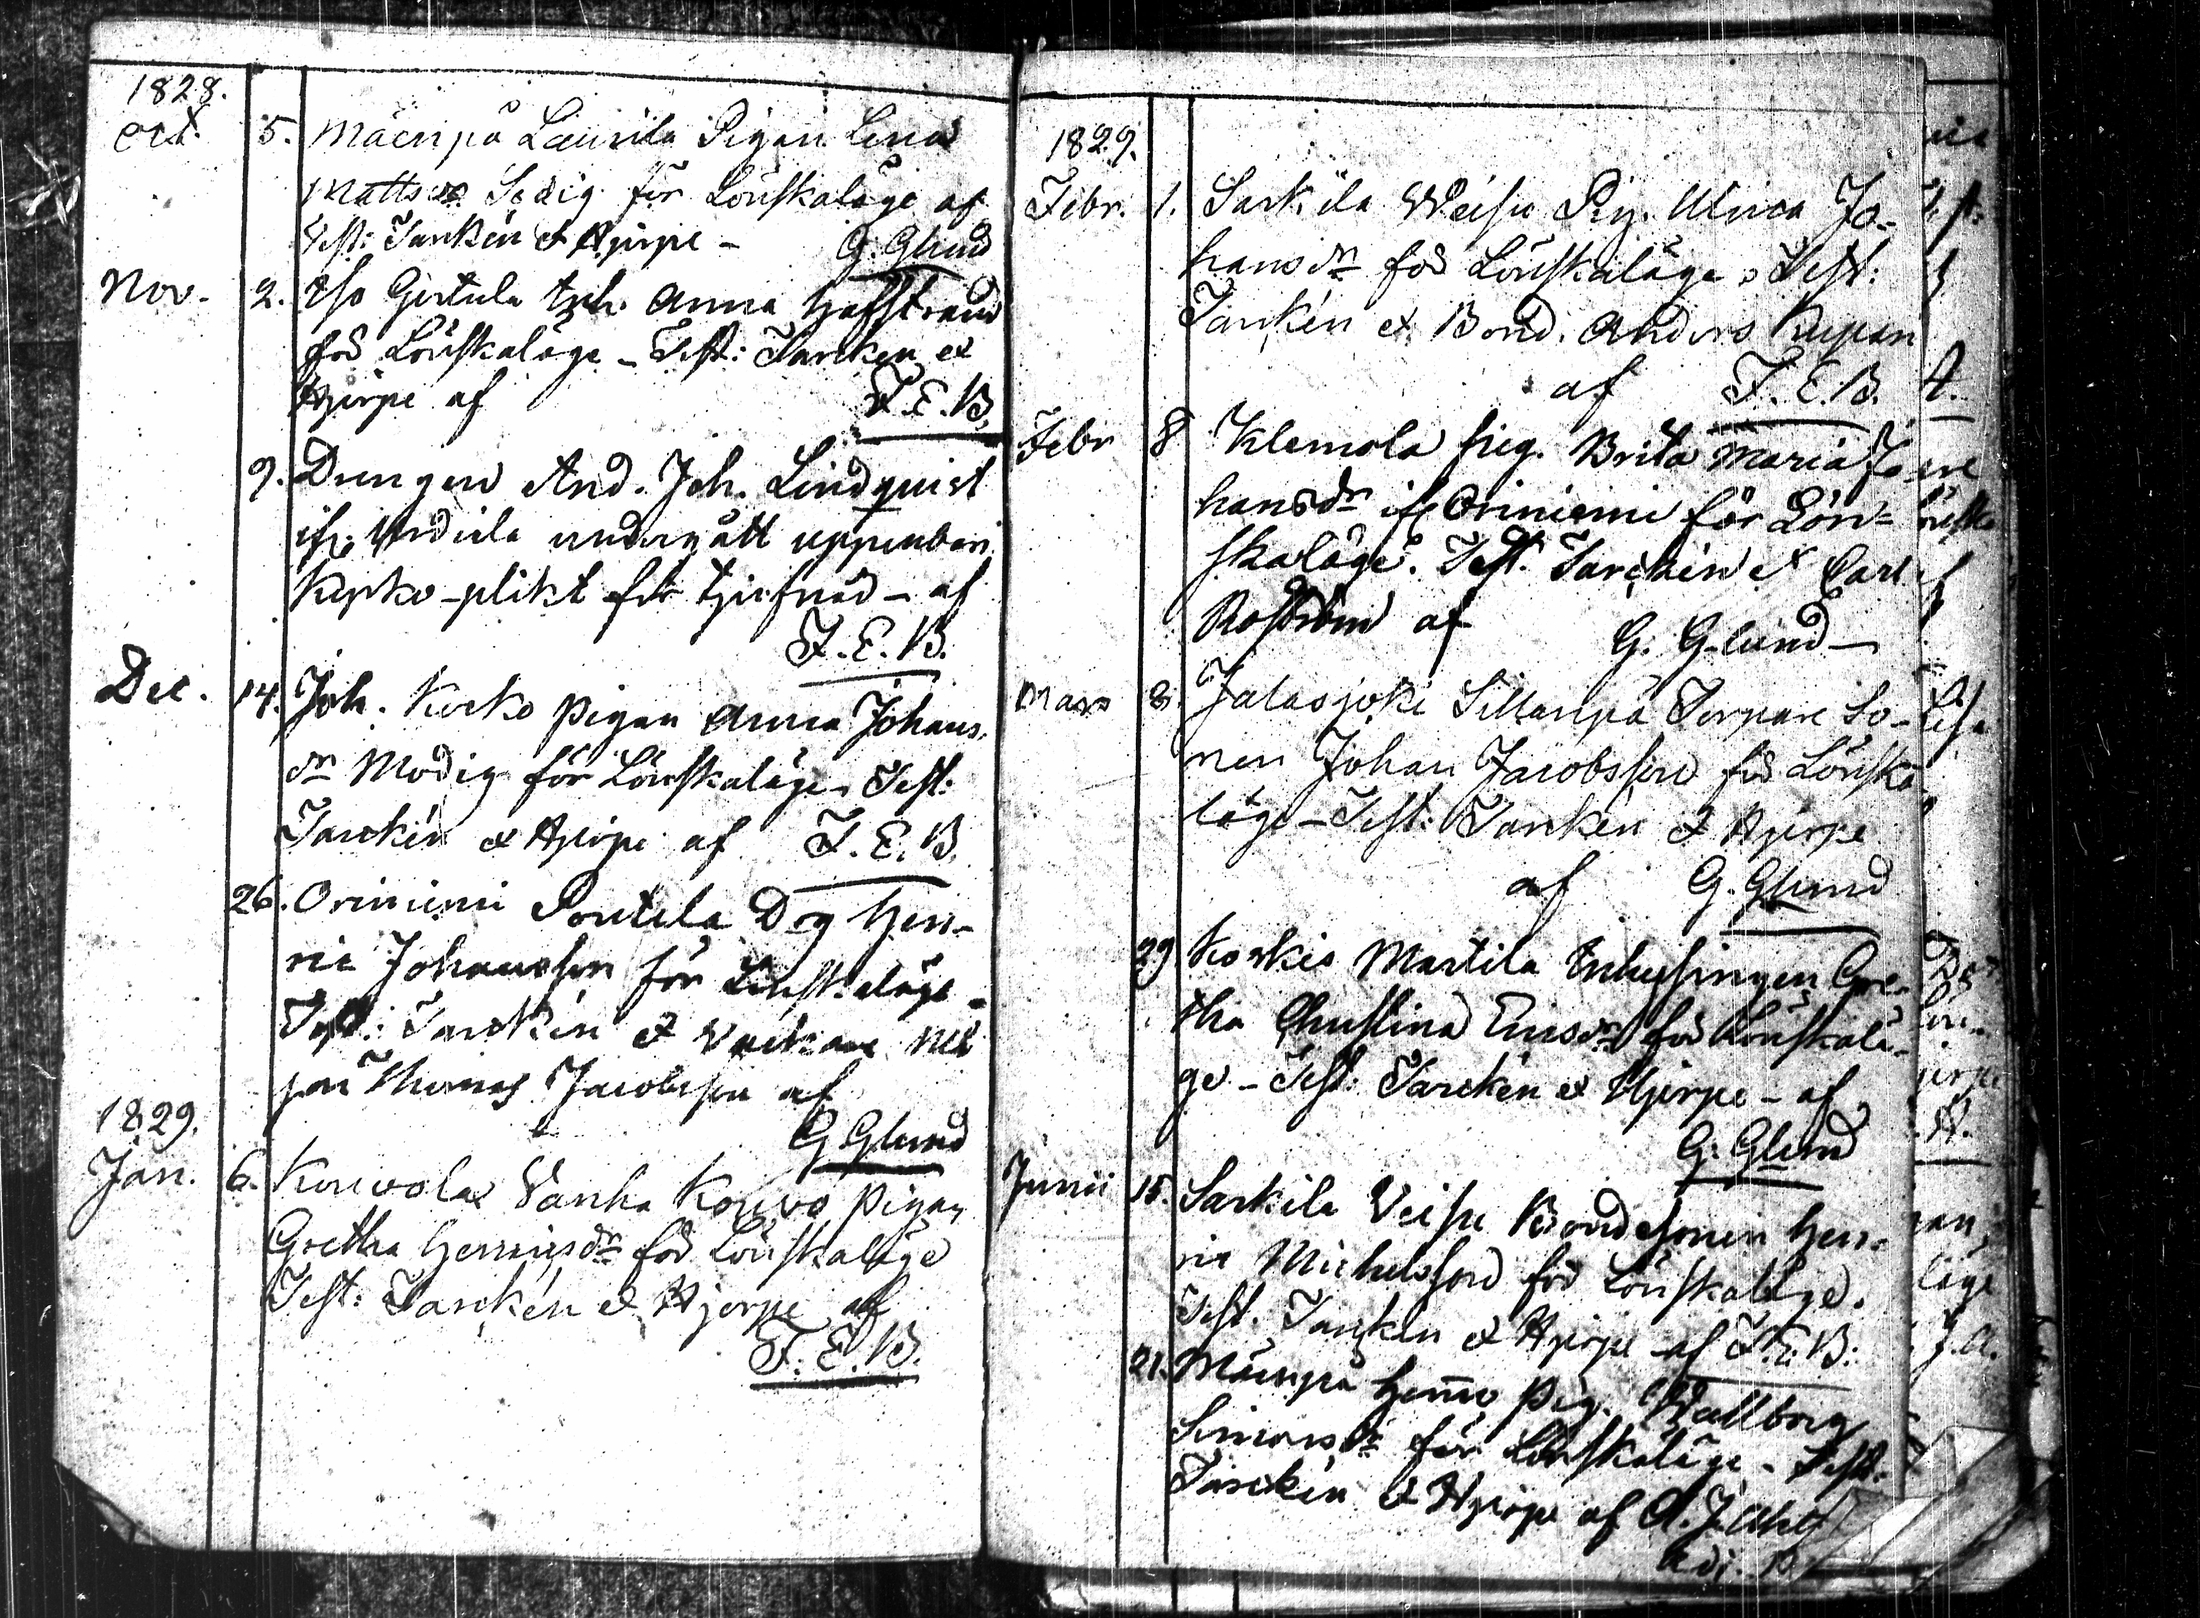 1828.
Oct. 5. Mäenpä Laurila Pigan Lena
Mattsdr Sedig för Lönskaläge af
Test: Tarckén et Hjerpe – G. Glund
Nov. 2. Iso Gertula Inh. Anna Hafstrand
för Lönskaläge – Test: Tarcken et
Hjerpe af F.E.B.
9. Drengen And. Joh. Lindquist
ifr. undergått uppenbar
Kyrko-plikt för tjufnad – af
F.E.B.
Dec. 14. Joh. Korko pigan Anna Johans
dr Modig för Lönskaläge. Test:
Tarckén et Hjerpe af F.E.B.
26. Oriniemi Pentila Drg Hen-
ric Johansson för Lönskaläge –
Test: Tarckén et
Thomas Jacobsson af
G Glund
1829.
Jan. 6. Kouvola Vanha Kouvo pigan
Gretha Henricsdr för Lönskaläge
Test: Tarckén et Hjerpe af
F.E.B.
1829.
Febr. 1. Sarkila Weisu Pig. Ulrica Jo-
hansdr för Lönskaläge, Test:
Tarckén et Bond. Anders
af F.E.B.
Febr 8 Klemola Pig. Brita Maria Jo
hansdr ifr Oriniemi för Lön-
skaläge. Test. Tarckén et Carl
af G. Glund –
Mars 8. Jalasjoki Sillanpä Torpare So-
nen Johan Jacobsson för Lönska
läge – Test: Tarckén et Hjerpe
af G. Glund
29 Korkis Martila Inhysingen Gre-
tha Christina Ericsdr för Lönskalä-
ge – Test: Tarckén et Hjerpe – af
G. Glund
Junii 15. Sarkila Veisu Bondesonen Hen-
ric Michelsson för Lönskaläge.
Test. Tarckén et Hjerpe af F.E.B.
21. Mäenpä Hemo Pig. Wallborg
Simonsdr för Lönskaläge – Test.
Tarckén et Hjerpe af A.J.